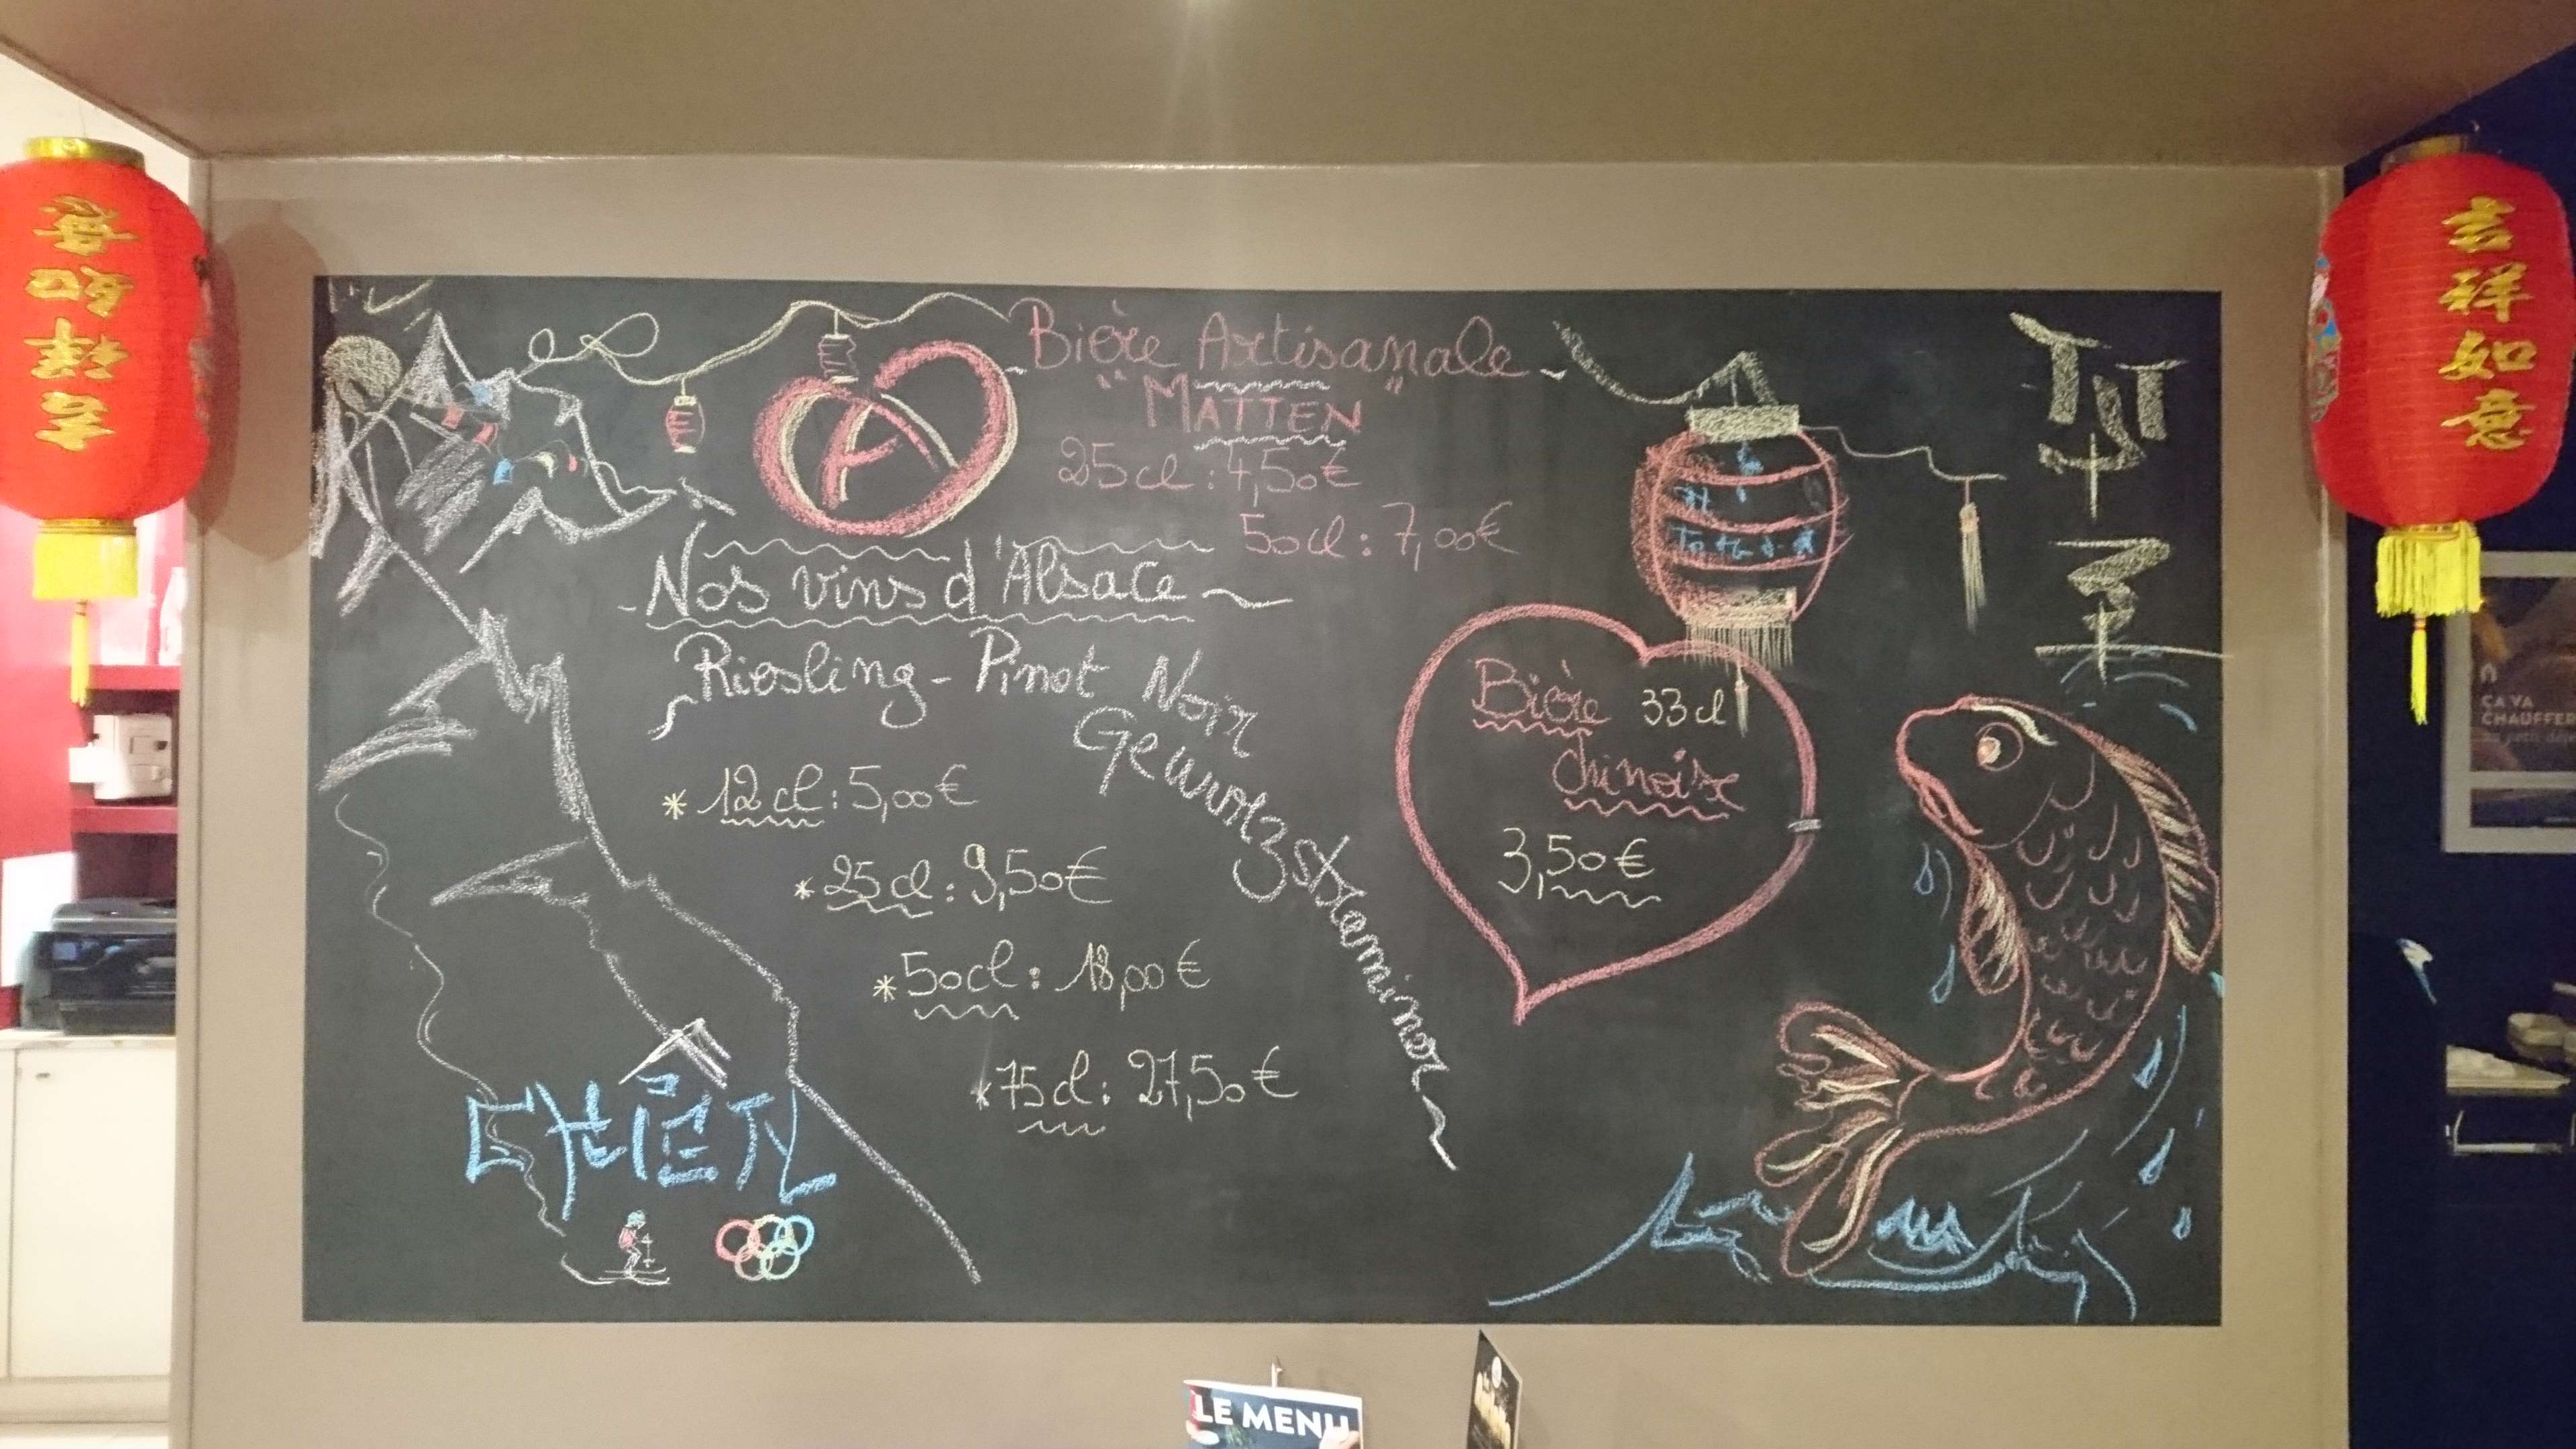 吉祥如意
吉祥如意
Bière Artisanale
"MATTEN"
25cl : 4,50€
50cl : 7,00€
Nos vins d'Alsace
Riesling - Pinot Noir
Gewurezstraminer
* 12cl : 5,00€
* 25cl : 9,50€
* 50cl : 18,00€
* 75cl : 27,50€
Bière 33cl
chinoise
3,50€
CA VA
CHAUFFER
LE MENU